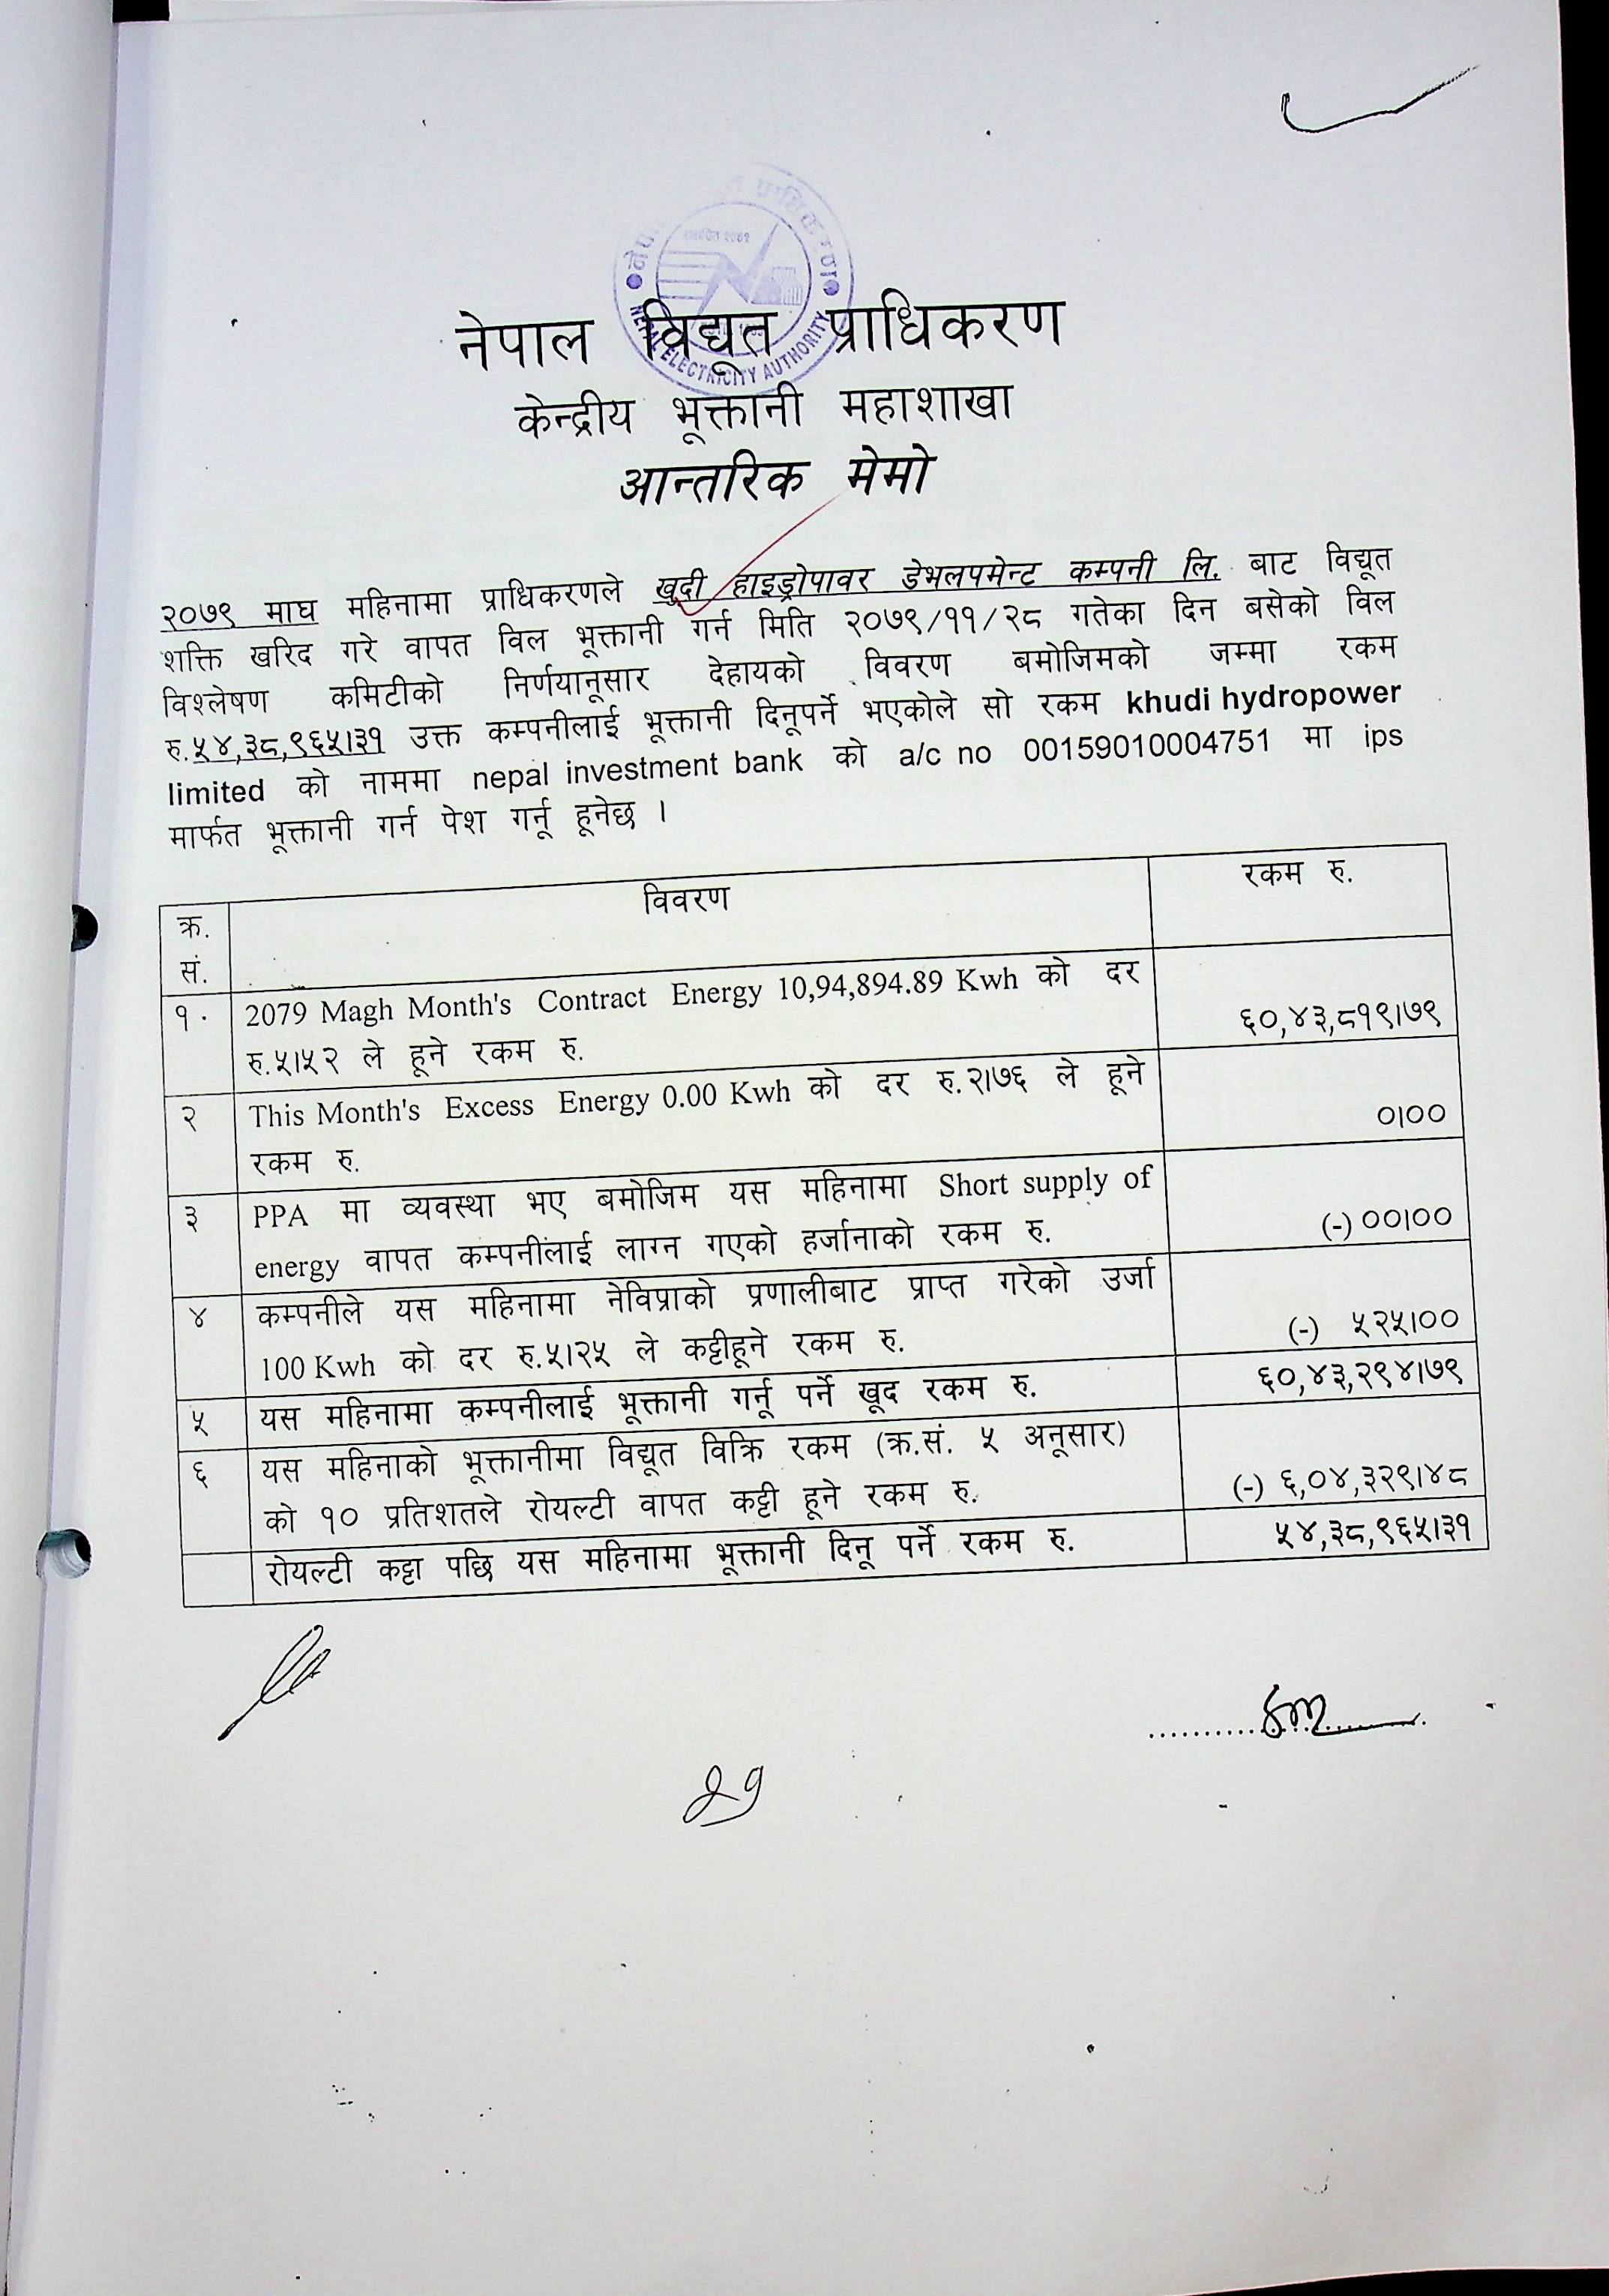 नेपाल विद्यूत प्राधिकरण
NEPAL ELECTRICITY AUTHORITY
केन्द्रीय भूक्तानी महाशाखा
आन्तरिक मेमो
२०७९ माघ महिनामा प्राधिकरणले खुदी हाइड्रोपावर डेभलपमेन्ट कम्पनी लि. बाट विद्यूत
शक्ति खरिद गरे वापत विल भूक्तानी गर्न मिति २०७९/११/२८ गतेका दिन बसेको विल
विश्लेषण कमिटीको निर्णयानूसार देहायको विवरण बमोजिमको जम्मा रकम
रु.५४,३८,९६५।३१ उक्त कम्पनीलाई भूक्तानी दिनूपर्ने भएकोले सो रकम khudi hydropower
limited को नाममा nepal investment bank को a/c no 00159010004751 मा ips
मार्फत भूक्तानी गर्न पेश गर्नू हूनेछ ।
क्र. सं. विवरण रकम रु.
१. 2079 Magh Month's Contract Energy 10,94,894.89 Kwh को दर
रु.५।५२ ले हूने रकम रु. ६०,४३,८१९।७९
२ This Month's Excess Energy 0.00 Kwh को दर रु.२।७६ ले हूने
रकम रु. ०।००
३ PPA मा व्यवस्था भए बमोजिम यस महिनामा Short supply of
energy वापत कम्पनीलाई लाग्न गएको हर्जानाको रकम रु. (-) ००।००
४ कम्पनीले यस महिनामा नेविप्राको प्रणालीबाट प्राप्त गरेको उर्जा
100 Kwh को दर रु.५।२५ ले कट्टीहूने रकम रु. (-) ५२५।००
५ यस महिनामा कम्पनीलाई भूक्तानी गर्नू पर्ने खूद रकम रु. ६०,४३,२९४।७९
६ यस महिनाको भूक्तानीमा विद्यूत विक्रि रकम (क्र.सं. ५ अनूसार)
को १० प्रतिशतले रोयल्टी वापत कट्टी हूने रकम रु. (-) ६,०४,३२९।४८
रोयल्टी कट्टा पछि यस महिनामा भूक्तानी दिनू पर्ने रकम रु. ५४,३८,९६५।३१